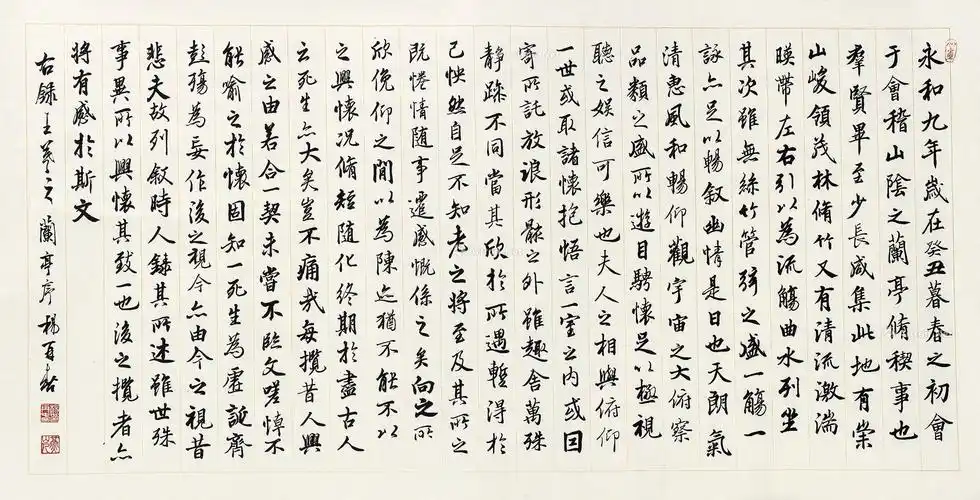 永和九年歲在癸丑暮春之初會
于會稽山陰之蘭亭脩稧事也
羣賢畢至少長咸集此地有崇
山峻領茂林脩竹又有清流激湍
暎帶左右引以為流觴曲水列坐
其次雖無絲竹管弦之盛一觴一
詠亦足以暢叙幽情是日也天朗氣
清惠風和暢仰觀宇宙之大俯察
品類之盛所以遊目騁懷足以極視
聽之娛信可樂也夫人之相與俯仰
一世或取諸懷抱悟言一室之內或因
寄所託放浪形骸之外雖趣舍萬殊
静躁不同當其欣於所遇暫得於
己怏然自足不知老之將至及其所之
既惓情隨事遷感慨係之矣向之所
欣俛仰之間以為陳迹猶不能不以
之興懷況脩短隨化終期於盡古人
云死生亦大矣豈不痛哉每攬昔人興
感之由若合一契未嘗不臨文嗟悼不
能喻之於懷固知一死生為虛誕齊
彭殤為妄作後之視今亦由今之視昔
悲夫故列叙時人錄其所述雖世殊
事異所以興懷其致一也後之攬者亦
將有感於斯文
右錄王羲之蘭亭序楊百